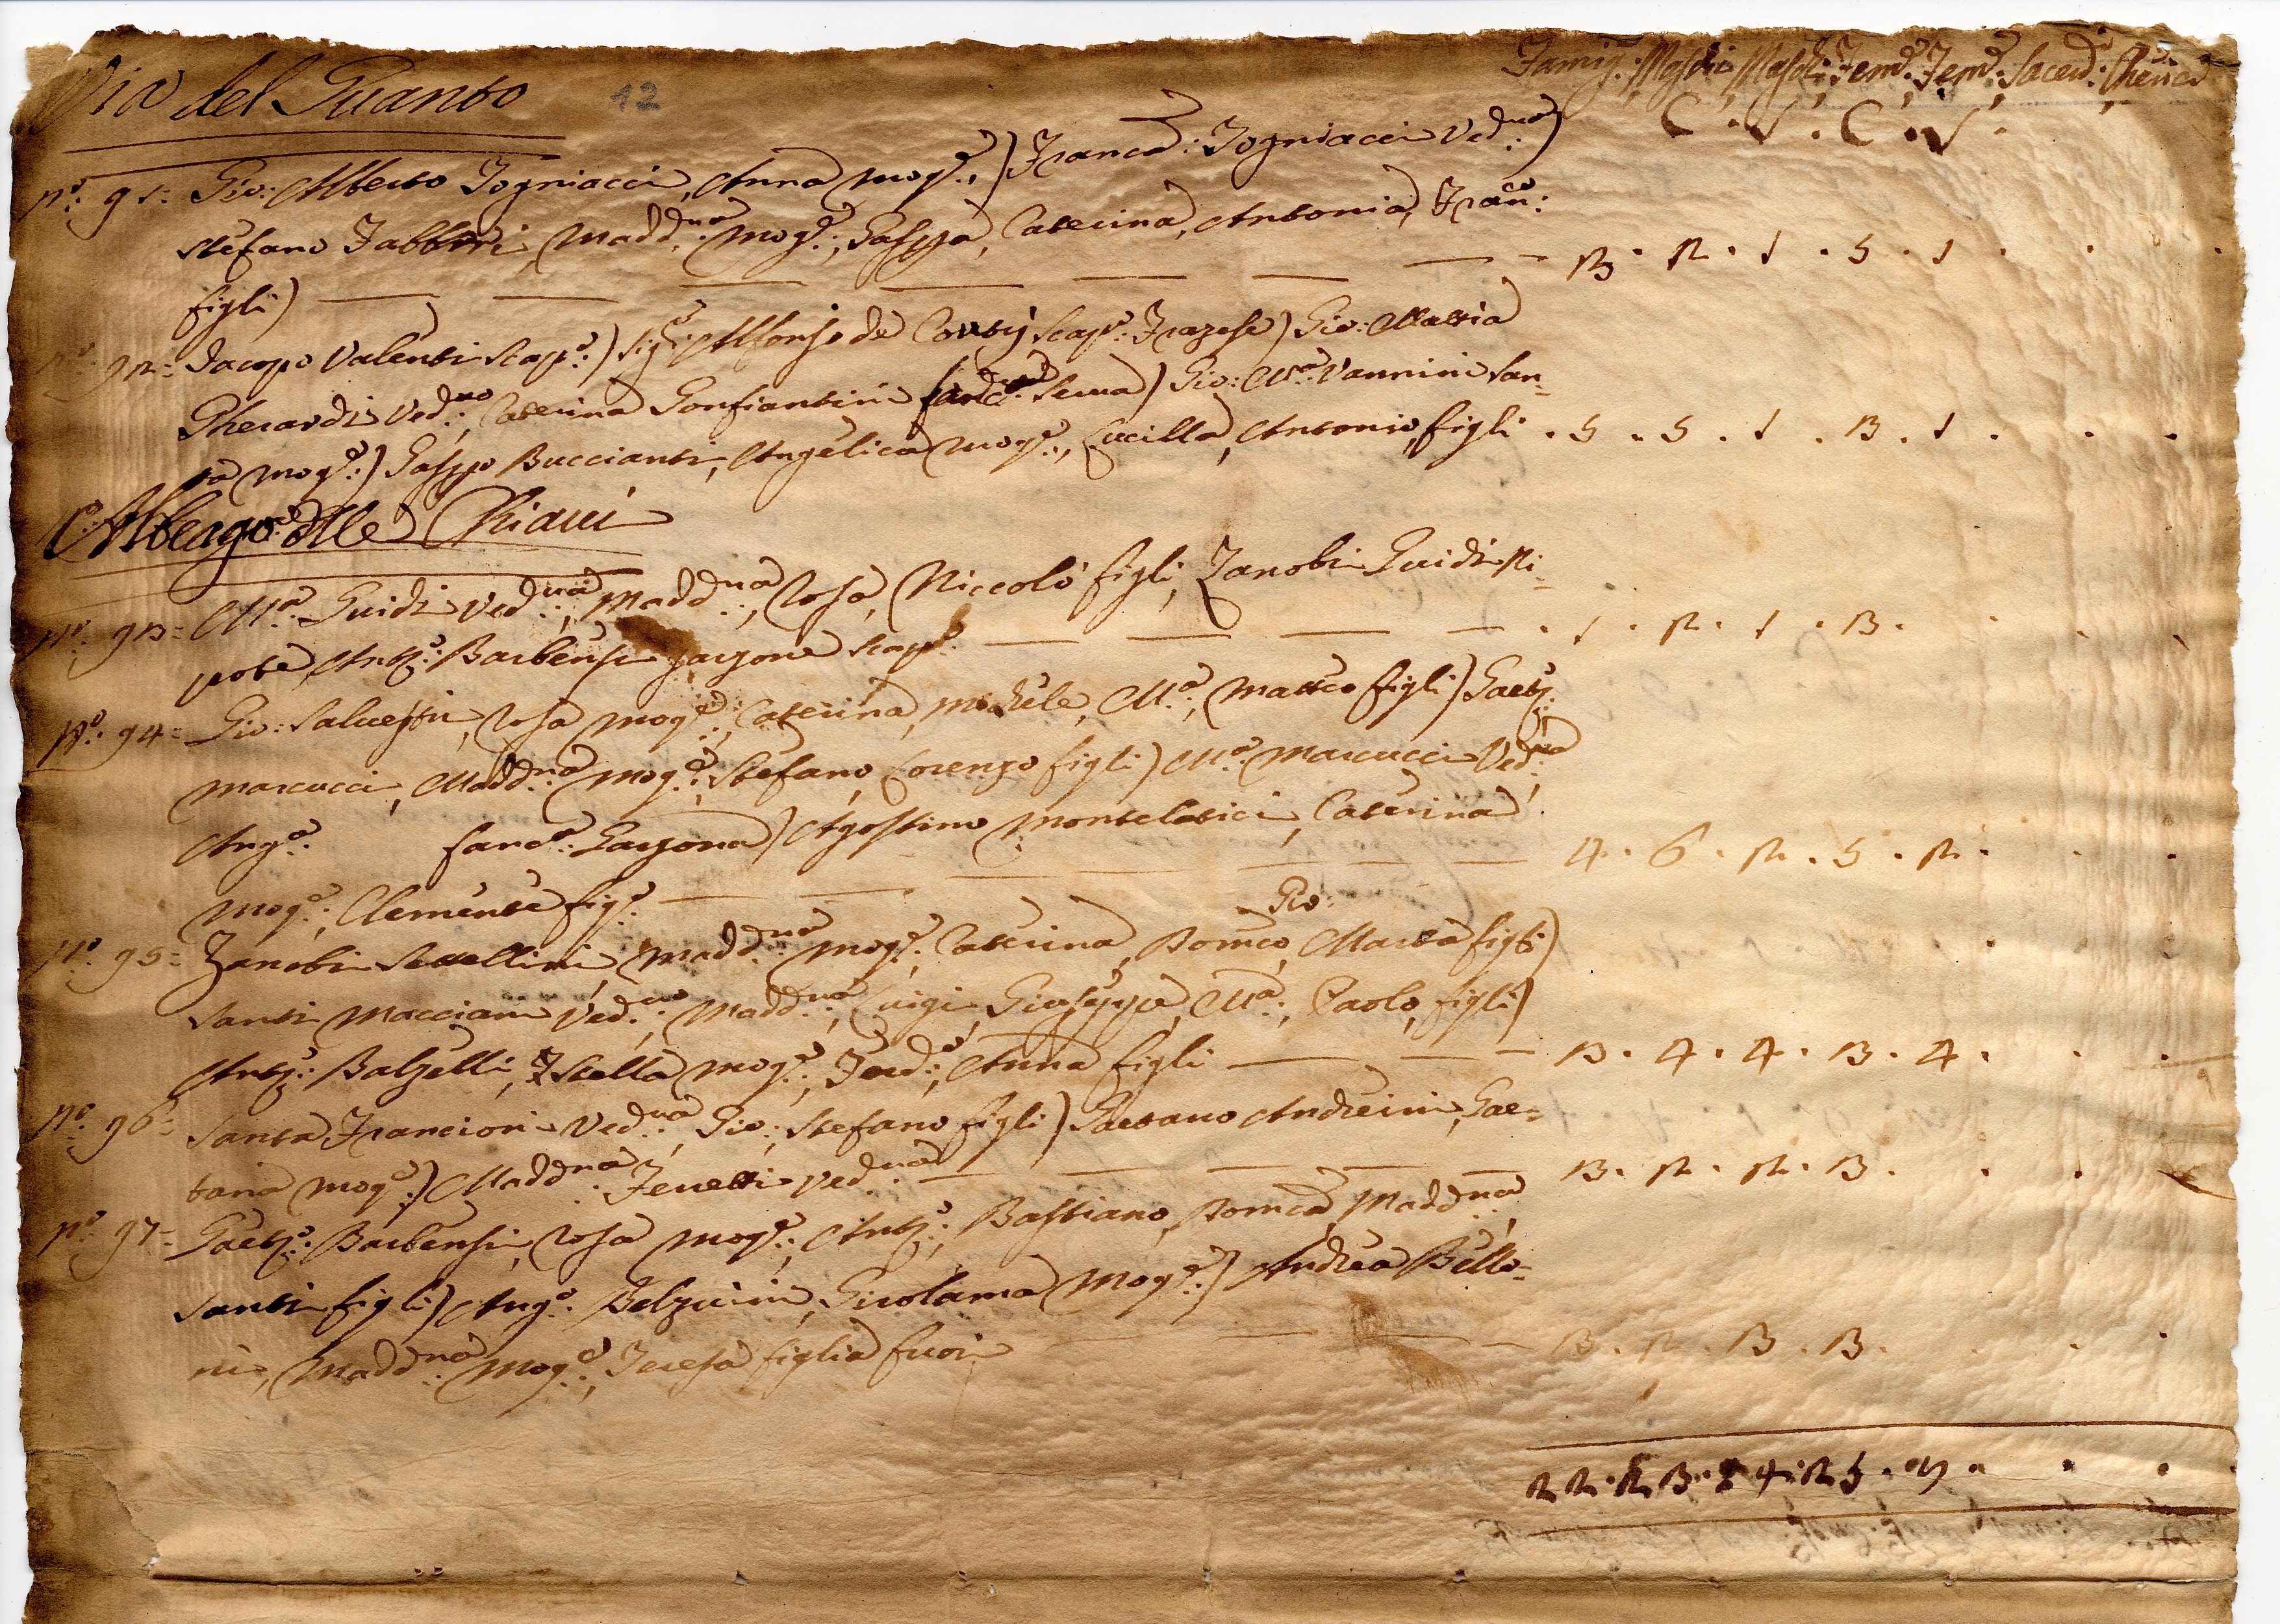 Via del Guanto 42
Famig: Maschi Maschi Fem: Fem: Sacerd: Cherici
C . V . C . V .
N.o 91: Gio: Alberto Fogniacci, Anna mog.e,) Franca: Fogniacci Ved.na)
Stefano Fabbrri, Madd.na mog.e, Gasppa, Caterina, Antonia, Fran:
figli) 3 . 2 . 1 . 5 . 1 .
N.o 92= Jacopo Valenti Scap.o) Sig.e Alfonso de Scap.o Frazese) Gio: Mattia
Gherardi Ved.no, Caterina Gonfiantini Serua) Gio: M.a Vannini San=
ta mog.e) Gasppo Buccianti, Angelica mog.e, Lucilla, Antonio figli . 5 . 5 . 1 . 3 . 1 .
Albergo dlle Chiaui
N.o 93= M.a Guidi Ved.na, Madd.na, Rosa, Niccolò figli, Zanobi Guidi Ni=
pote, Ant.o: Barbensi garzone scap.o . 1 . 2 . 1 . 3 .
N.o 94= Gio: Saluestri, Rosa mog.e, Caterina, Michele, M.a, Matteo figli) Gaet.o:
Marcucci, Madd.na mog.e, Stefano, Lorenzo figli) M.a Marcucci Ved.na
Ang.a fanc.a: Garzona) Agostino Montelatici, Caterina
mog.e, Clemente fig.o 4 . 6 . 2 . 5 . 2 .
Gio:
N.o 95= Zanobi Madd.na mog.e, Caterina, Domco, Marta figli)
Santi Macciani Ved.uo, Madd.na, Luigi, Giuseppe, M.a, Paolo, figli)
Ant.o: Balzelli, Stella mog.e, Ferd:o, Anna figli 3 . 4 . 4 . 3 . 4 .
N.o 96= Santa Francioni Ved.na, Gio:, Stefano figli) Gaetano Andreini, Gae=
tana mog.e) Madd.na Ved.na 3 . 2 . 2 . 3 .
N.o 97= Gaet.o: Barbensi, Rosa mog.e, Ant.o:, Bastiano, Domca, Madd.na,
Santi figli) Ang.o Girolama mog.e) Andrea Bello=
ni, Madd.na mog.e, Teresa figlia fuori 3 . 2 . 3 . 3 .
22 . 23 . 14 . 25 . 9 .